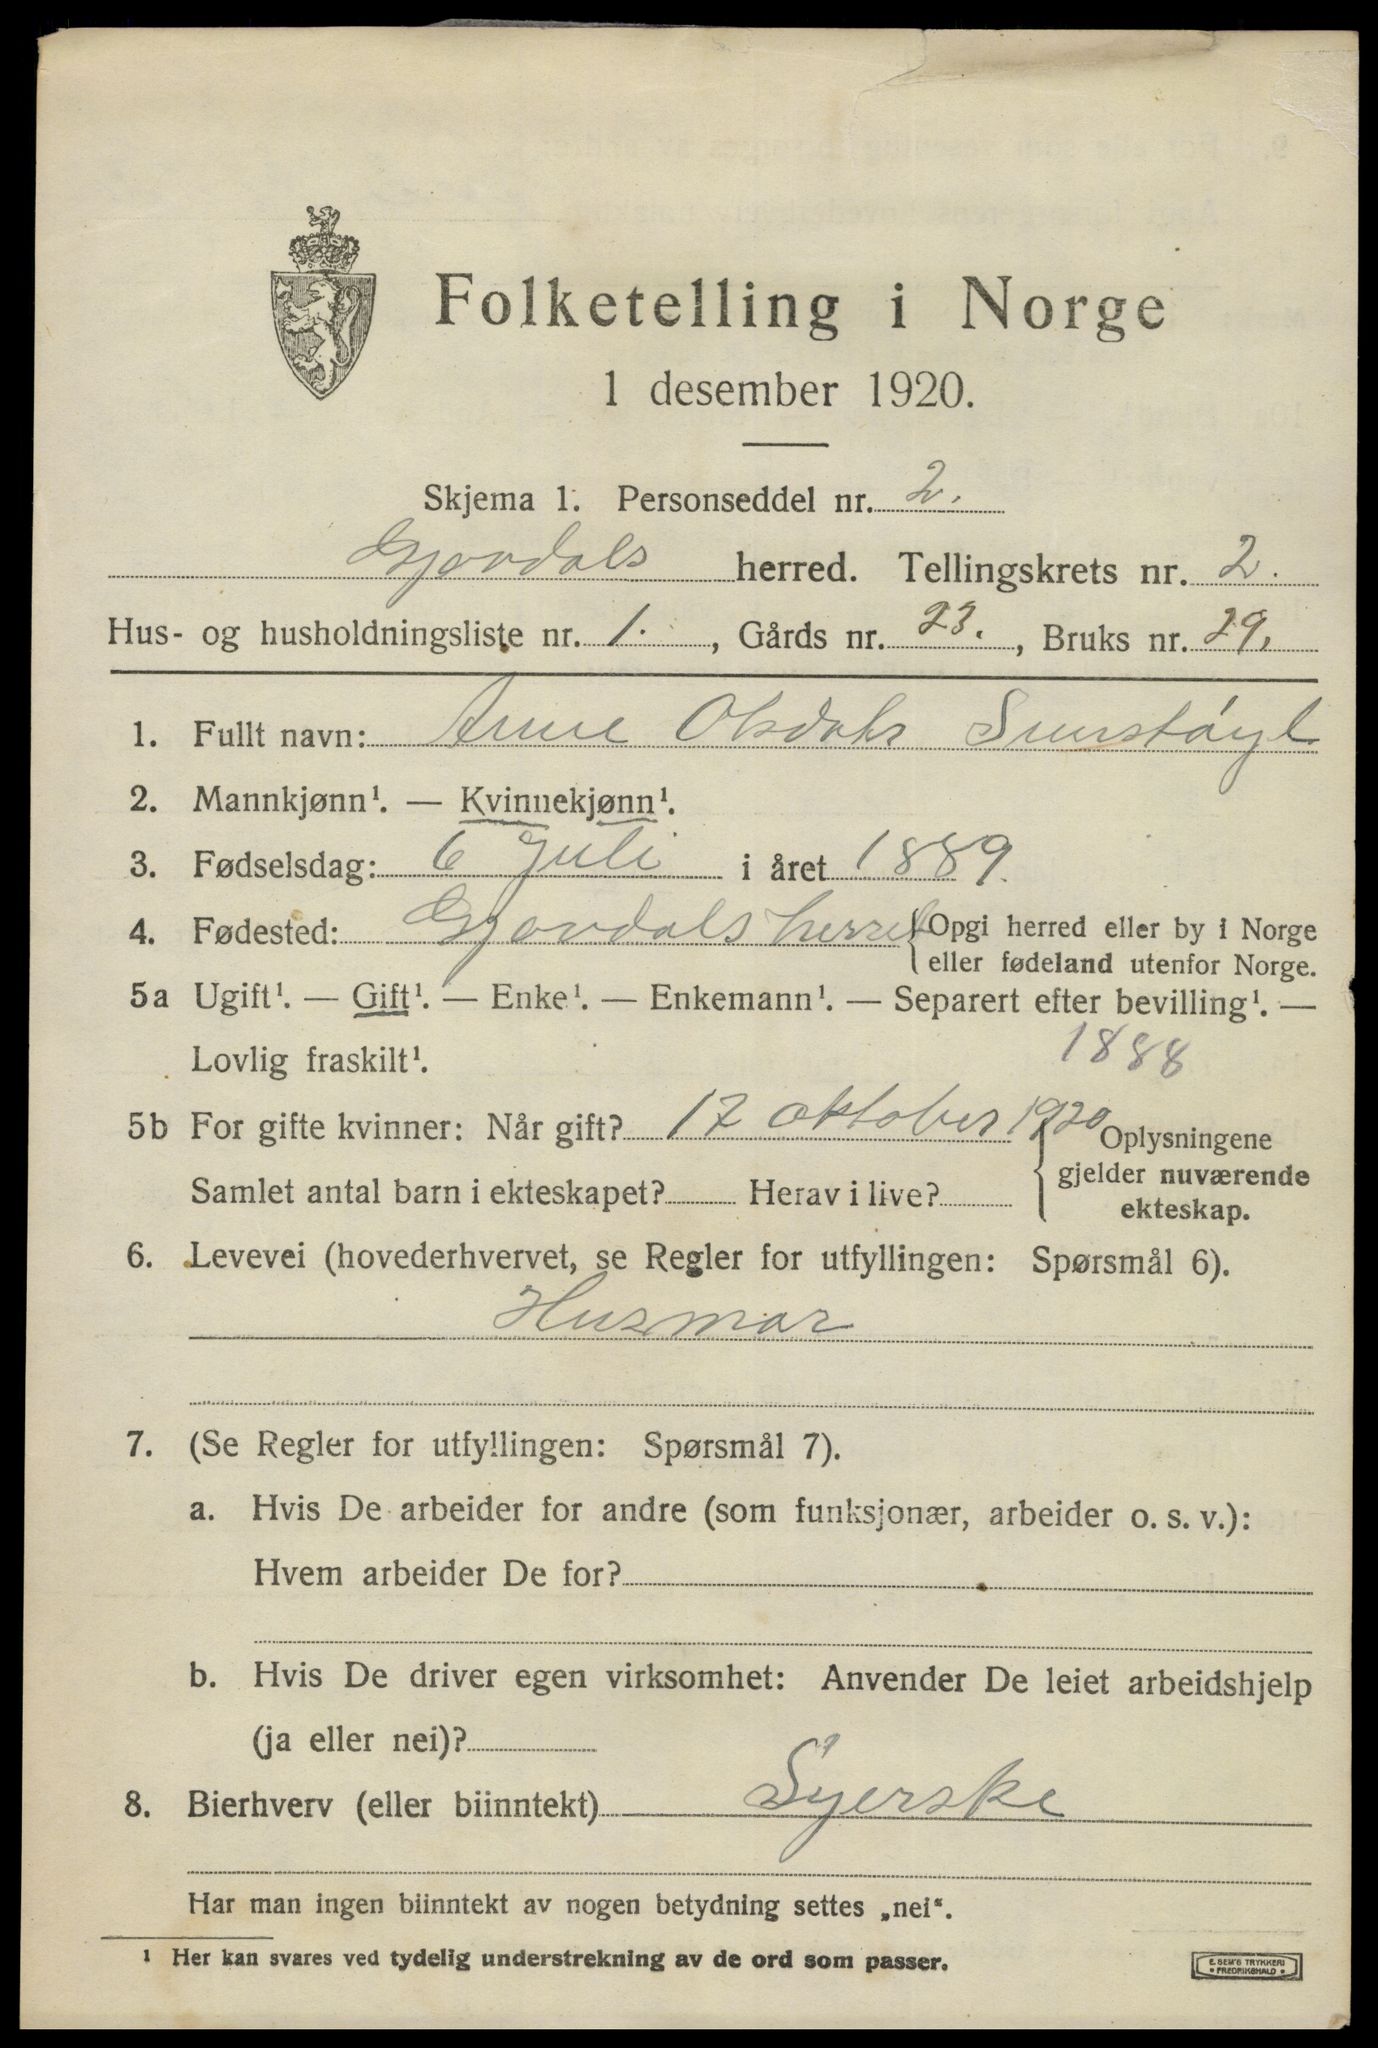 Folketelling i Norge
1 desember 1920.
Skjema 1. Personseddel nr. 2.
Gjøvdals herred. Tellingskrets nr. 2.
Hus- og husholdningsliste nr. 1. , Gårds nr. 23. , Bruks nr. 29.
1. Fullt navn: Anne Olsdatr
2. Mannkjønn¹. — Kvinnekjønn¹.
3. Fødselsdag: 6 Juli i året 1889.
4. Fødested: Gjøvdals herret {Opgi herred eller by i Norge
eller fødeland utenfor Norge.
5a Ugift¹. — Gift¹. — Enke¹. — Enkemann¹. — Separert efter bevilling¹. —
Lovlig fraskilt¹. 1888
5b For gifte kvinner: Når gift? 17 oktober 1920
Oplysningene
Samlet antal barn i ekteskapet? Herav i live? gjelder nuværende
ekteskap.
6. Levevei (hovederhvervet, se Regler for utfyllingen: Spørsmål 6).
Husmor
7. (Se Regler for utfyllingen: Spørsmål 7).
a. Hvis De arbeider for andre (som funksjonær, arbeider o. s. v.):
Hvem arbeider De for?
b. Hvis De driver egen virksomhet: Anvender De leiet arbeidshjelp
(ja eller nei)?
8. Bierhverv (eller biinntekt) Syerske
Har man ingen biinntekt av nogen betydning settes „nei“.
¹ Her kan svares ved tydelig understrekning av de ord som passer.
E. SEM'S TRYKKERI
• FREDRIKSHALD •